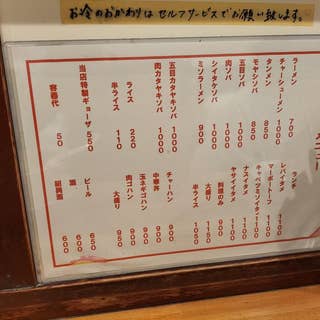 お冷のおかわりは セルフサービスでお願い致します。
メニュー
ラーメン 700
チャーシューメン 1000
タンメン 850
モヤシソバ 850
五目ソバ 1000
肉ソバ 1000
シイタケソバ 1000
ミソラーメン 900
五目カタヤキソバ 1000
肉カタヤキソバ 1000
ライス 220
半ライス 110
当店特製ギョーザ 550
容器代 50
ランチ
レバイタメ 1100
マーボートーフ 1100
キャベツミソイタメ 1100
ナスイタメ 1100
ヤサイイタメ 1100
料理のみ 900
大盛り 1150
半ライス 1050
チャーハン 900
中華丼 900
玉ネギゴハン 900
肉ゴハン 850
大盛り 950
ビール 650
酒 600
紹興酒 600